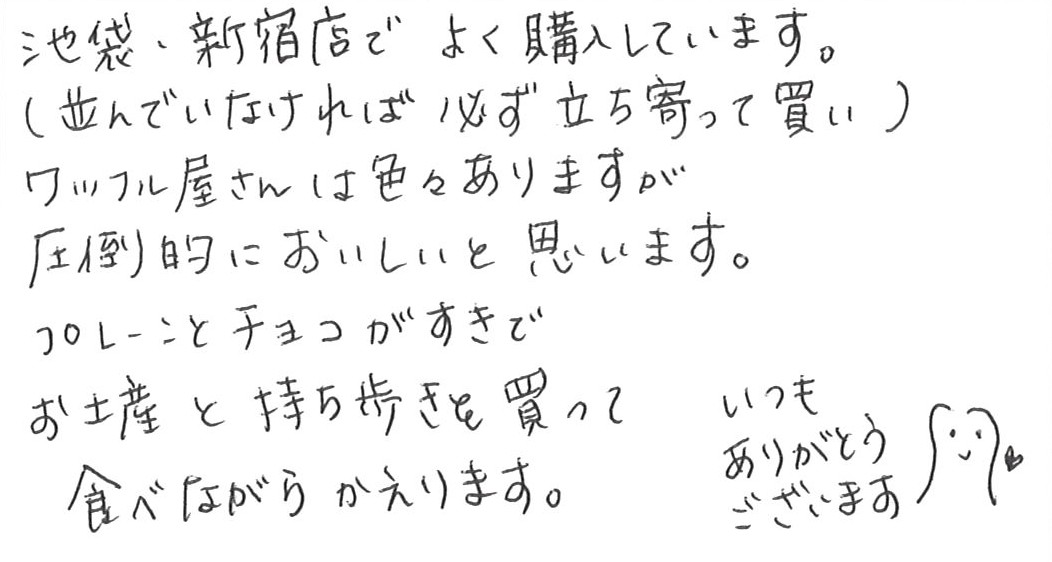 池袋、新宿店で よく購入しています。
(並んでいなければ 必ず立ち寄って買い)
ワッフル屋さんは色々ありますが
圧倒的においしいと思います。
プレーンとチョコがすきで
お土産と持ち歩きを買って
食べながらかえります。
いつも
ありがとう
ございます